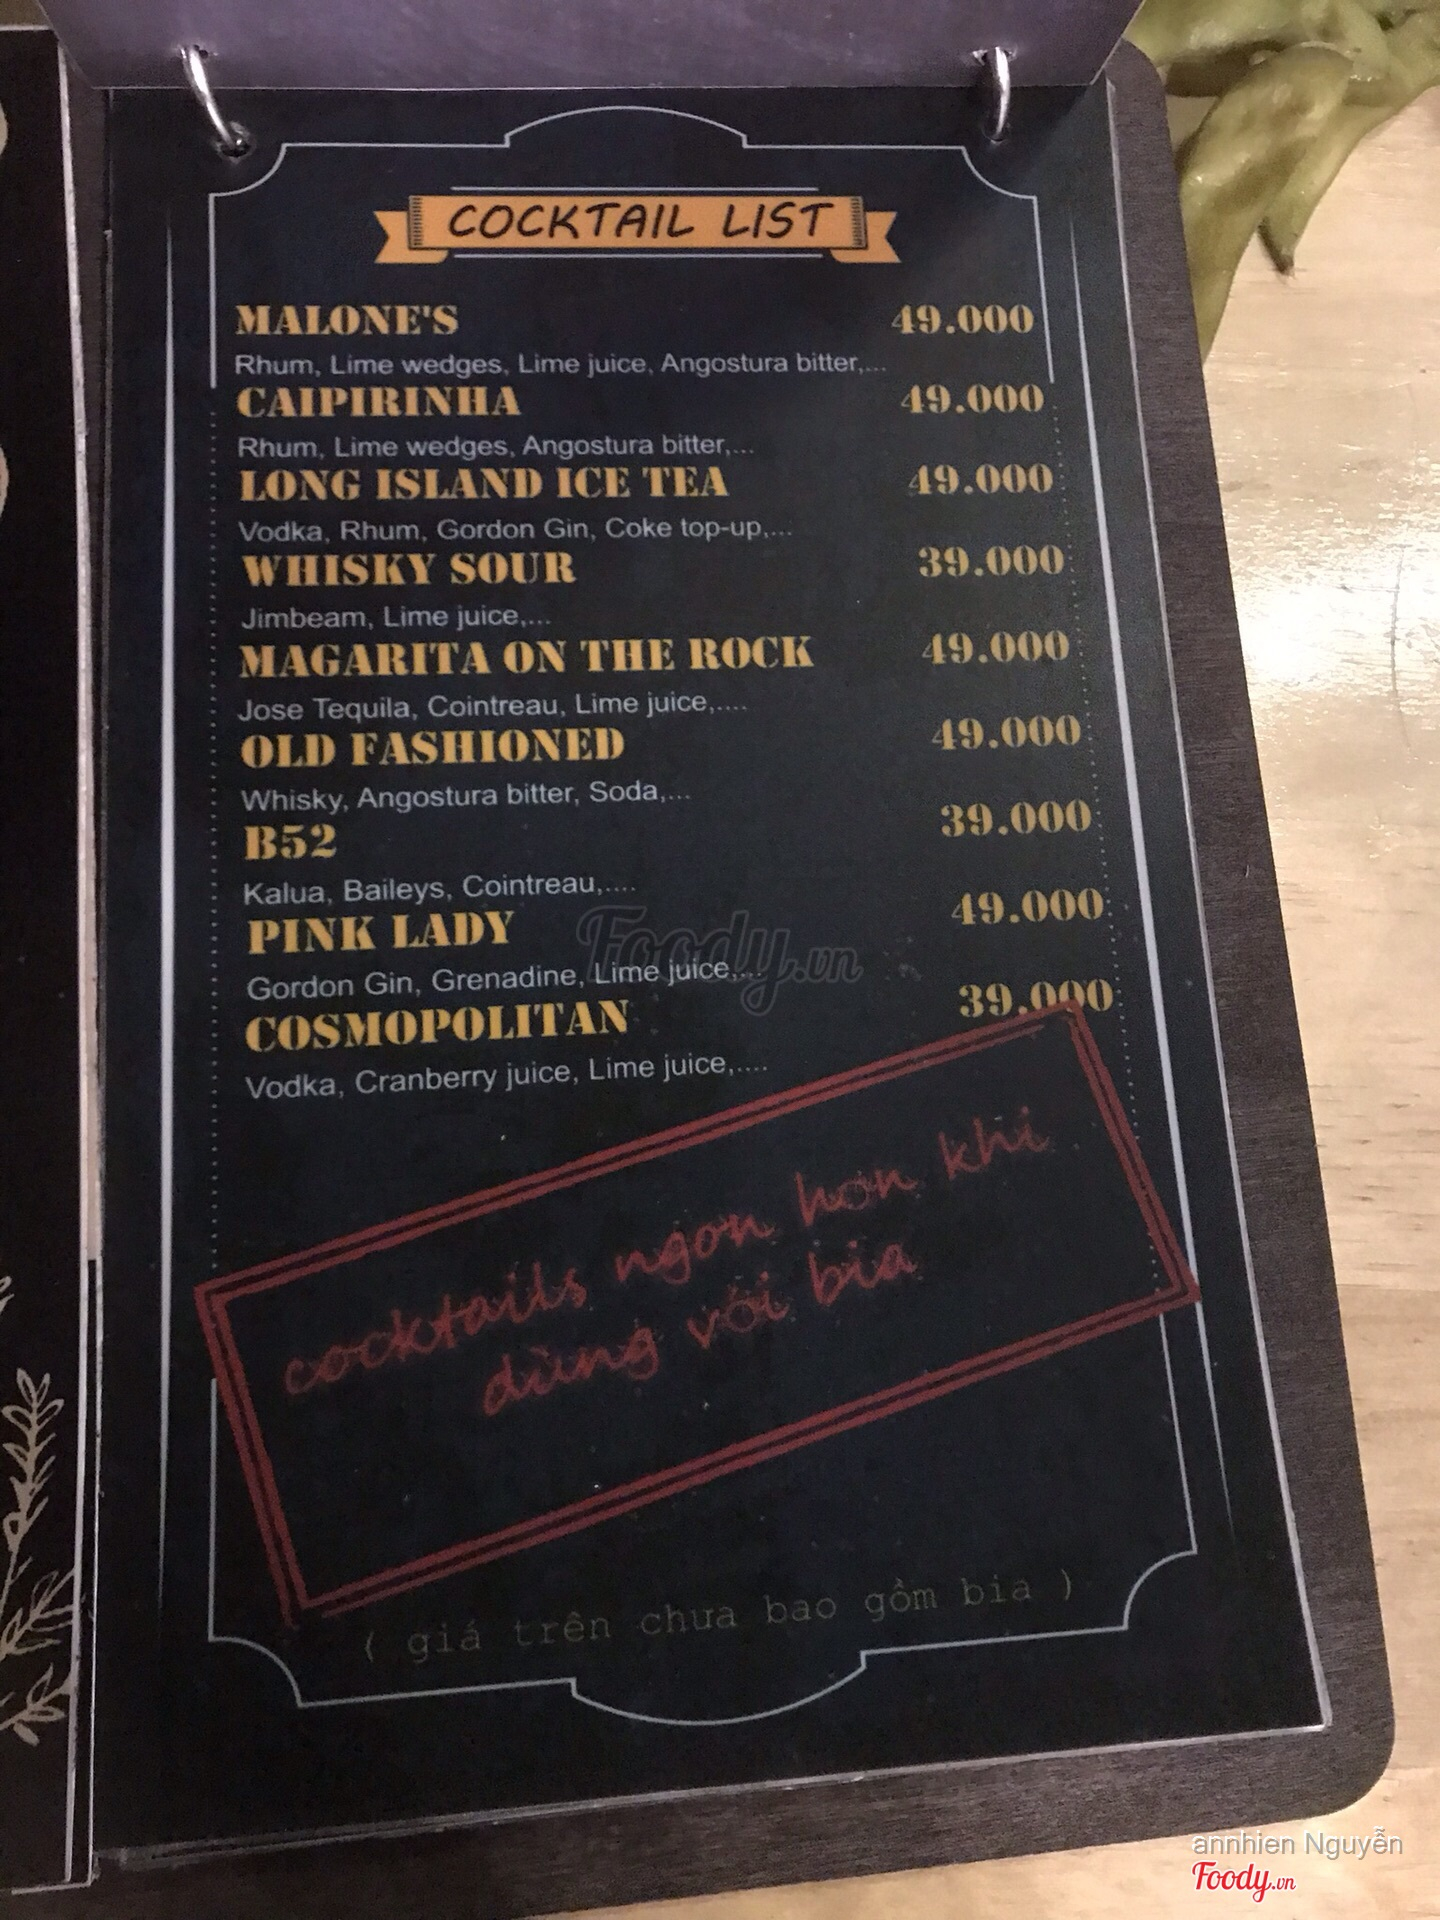 COCKTAIL LIST
MALONE'S 49.000
Rhum, Lime wedges, Lime juice, Angostura bitter,...
CAIPIRINHA 49.000
Rhum, Lime wedges, Angostura bitter,...
LONG ISLAND ICE TEA 49.000
Vodka, Rhum, Gordon Gin, Coke top-up,...
WHISKY SOUR 39.000
Jimbeam, Lime juice,...
MAGARITA ON THE ROCK 49.000
Jose Tequila, Cointreau, Lime juice,....
OLD FASHIONED 49.000
Whisky, Angostura bitter, Soda,...
B52 39.000
Kalua, Baileys, Cointreau,....
PINK LADY 49.000
Gordon Gin, Grenadine, Lime juice,...
COSMOPOLITAN 39.000
Vodka, Cranberry juice, Lime juice,....
Foody.vn
cocktails ngon hơn khi
dùng với bia
( giá trên chưa bao gồm bia )
annhien Nguyễn
Foody.vn